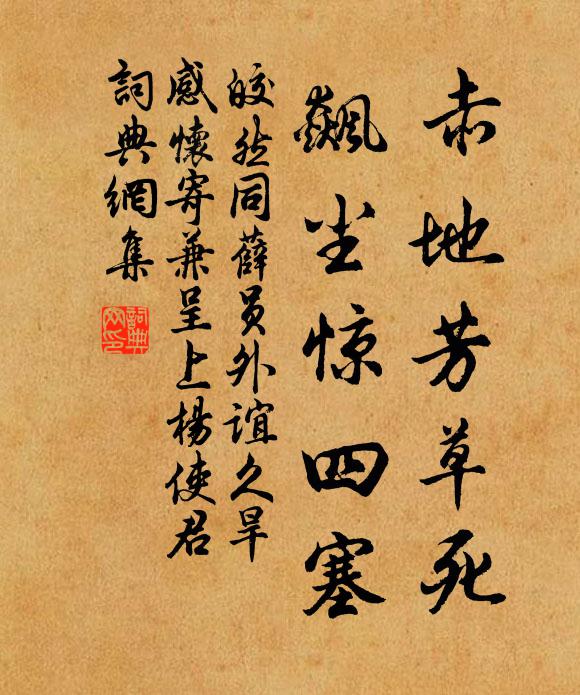 赤地芳草死
飙尘惊四塞
皎然同薛員外誼久旱
感懷寄兼呈上楊使君
詞典網集
詞典網印